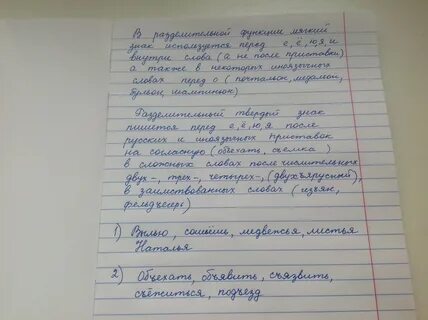 В разделительной функции мягкий
знак используется перед е, ё, ю, я, и
внутри слова (а не после приставки)
а также в некоторых иноязычных
словах перед о (почтальон, медальон,
бульон, шампиньон)
Разделительный твердый знак
пишется перед е, ё, ю, я после
русских и иноязычных приставок
на согласную (объехать, съемка)
в сложных словах после числительных
двух-, трех-, четырех-, (двухъярусный),
в заимствованных словах (изъян,
фельдъегерь)
1) Вылью, медвежья, листья
Наталья
2) Объехать, объявить, съязвить,
съёжиться, подъезд